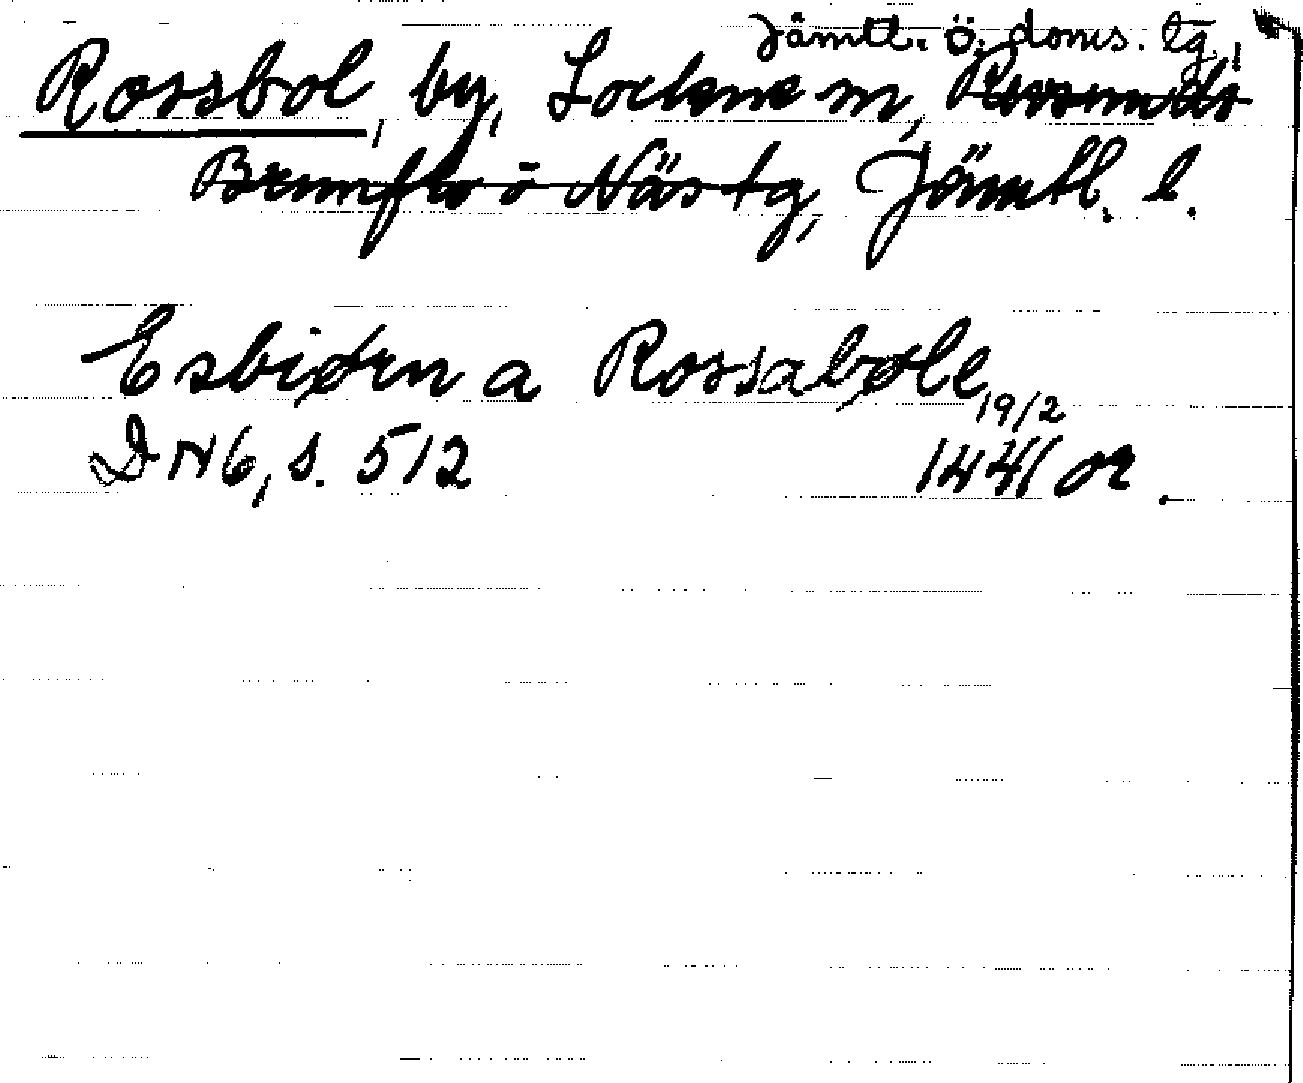 Jämtl. ö. doms. tg,
Rossbol, by, Lockne sn, Revsunds
Brunflo o Näs tg, Jämtl. l.
Esbiørn a Rossabøle
19/2
DN 6, s. 512 1441 or.